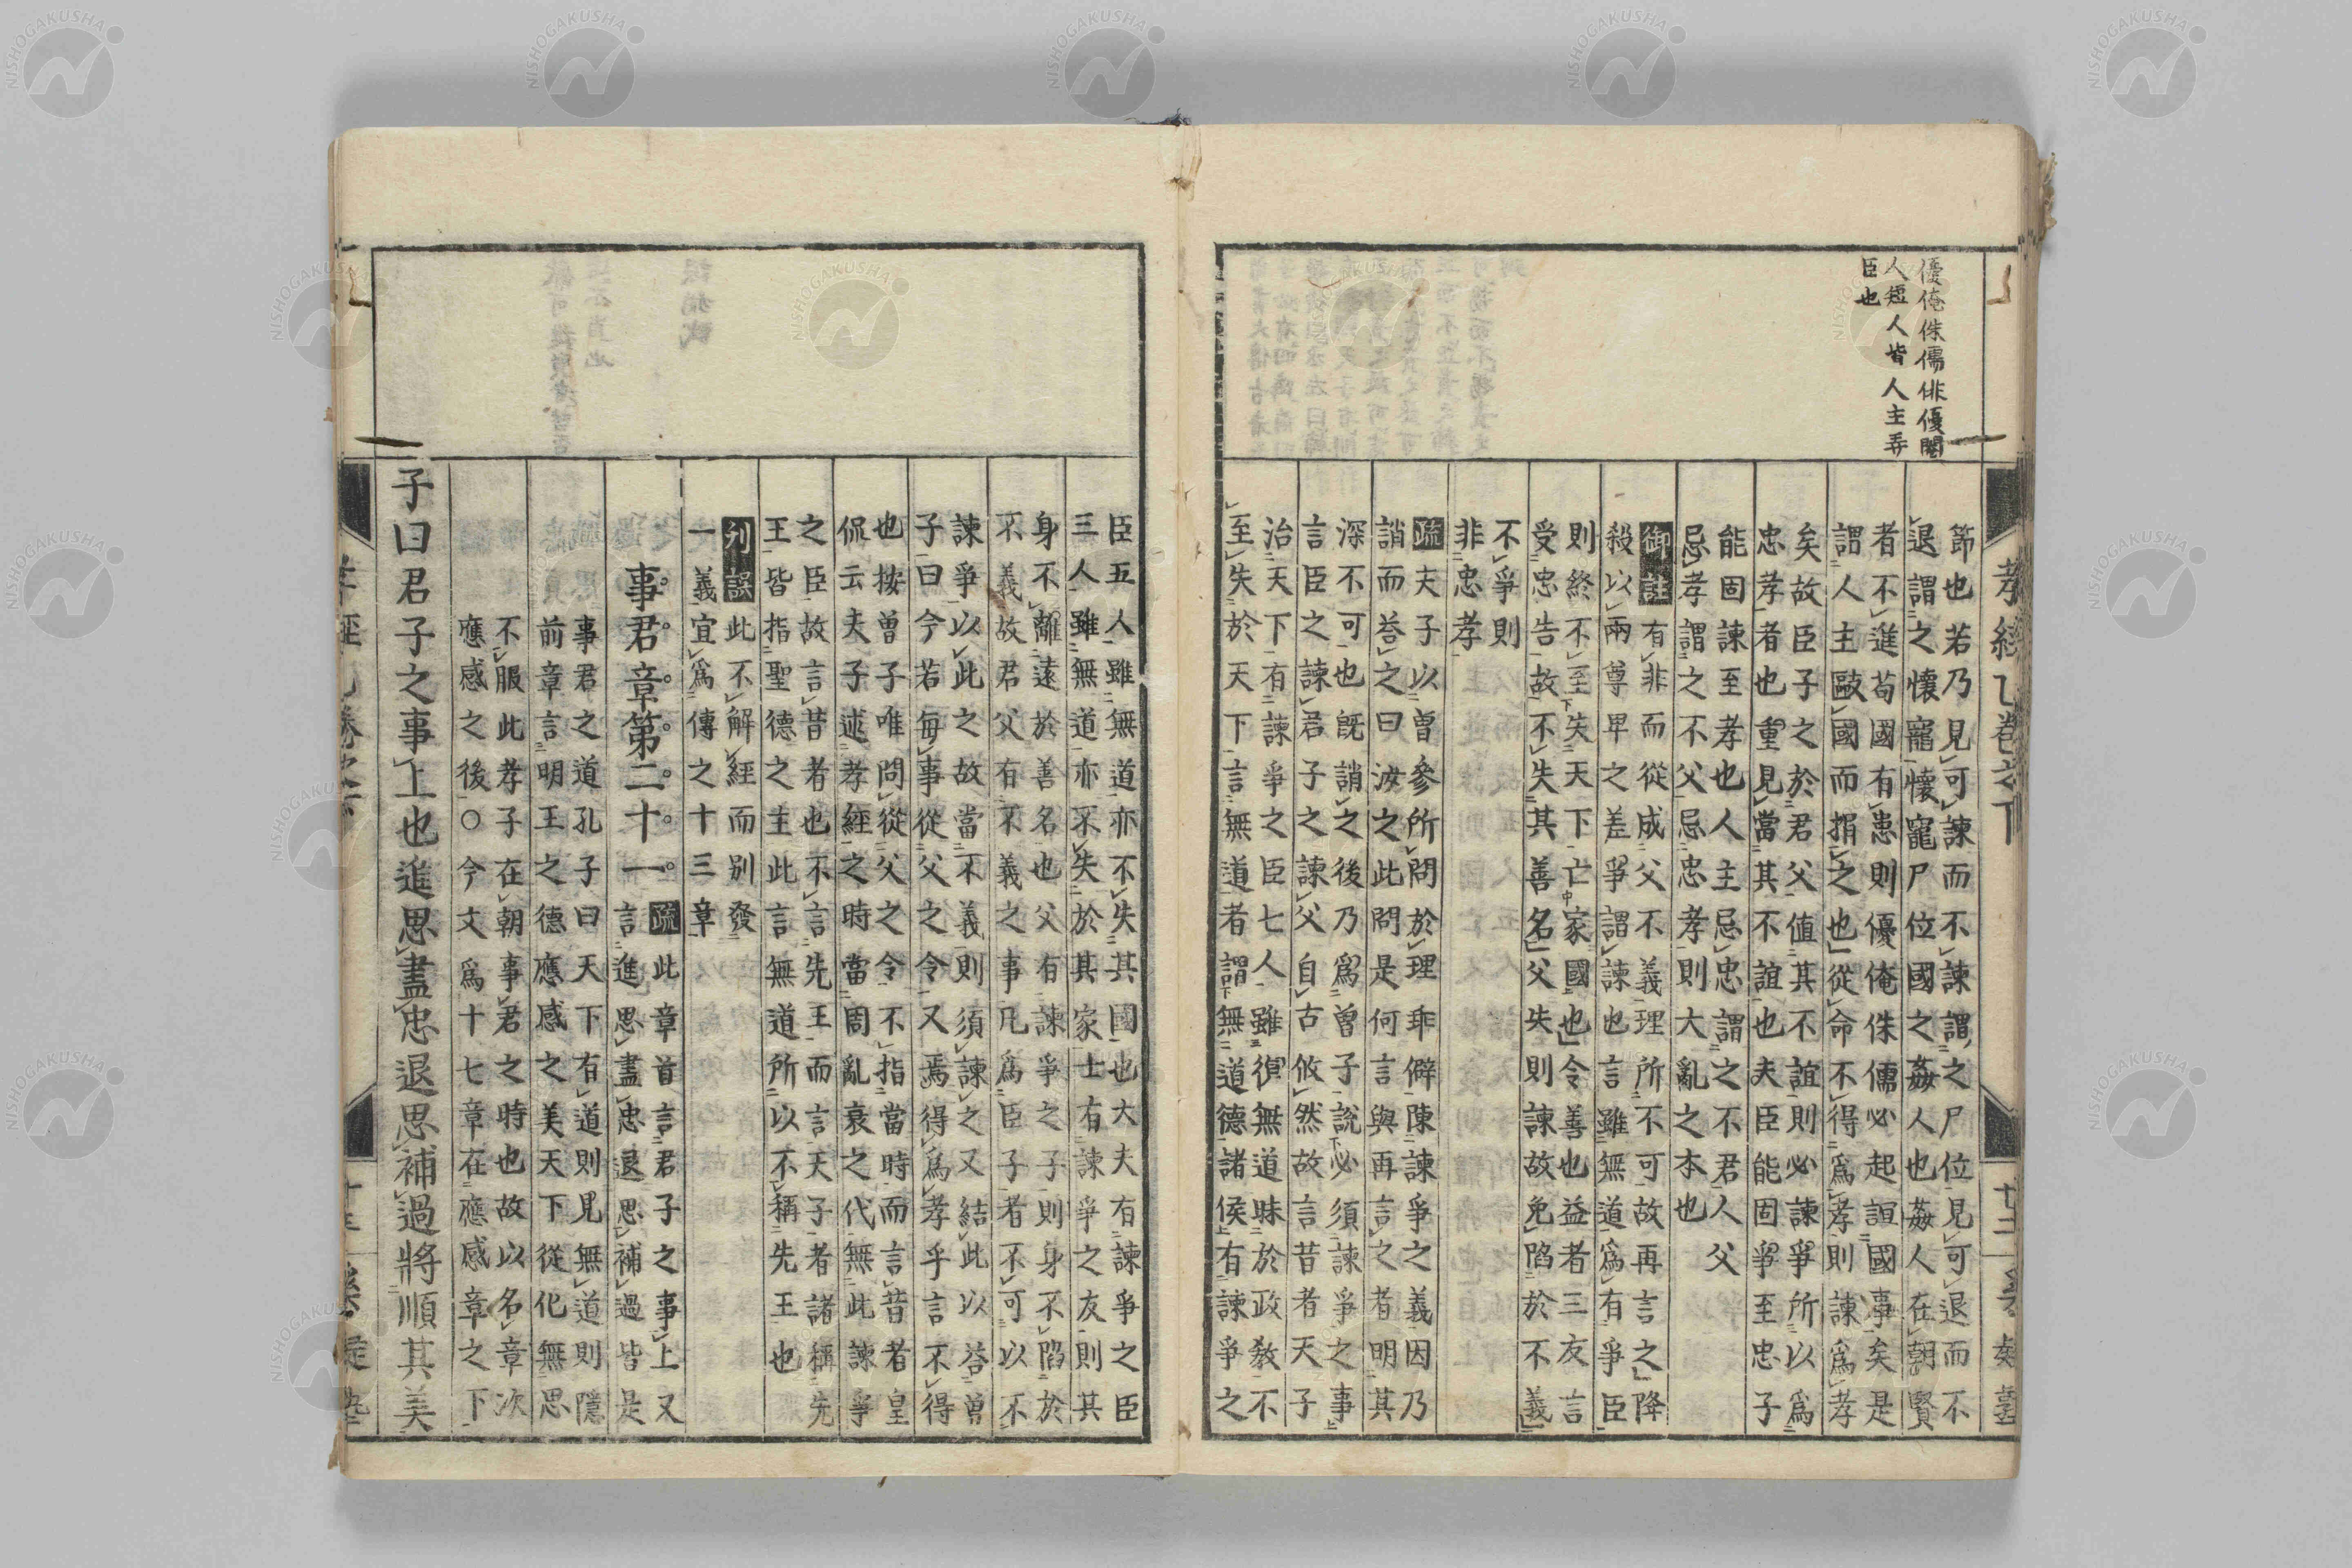 優俺侏儒俳優閹
人短人皆人主弄
臣也
節也若乃見可諫而不諫謂之尸位見可退而不
退謂之懷寵懷寵尸位國之姦人也姦人在朝賢
者不進苟國有患則優俺侏儒必起誼國事矣是
謂人主敺國而捐之也從命不得爲孝則諫爲孝
矣故臣子之於君父值其不誼則必諫爭所以爲
忠孝者也重見當其不誼也夫臣能固爭至忠子
能固諫至孝也人主忌忠謂之不君人父
忌孝謂之不父忌忠孝則大亂之本也
御註有非而從成父不義理所不可故再言之降
殺以兩尊卑之差爭謂諫也言雖無道爲有爭臣
則終不至失天下亡家國也令善也益者三友言
受忠告故不失其善名父失則諫故免陷於不義
不爭則
非忠孝
疏夫子以曽參所問於理乖僻陳諫爭之義因乃
誚而荅之曰汝之此問是何言與再言之者明其
深不可也既誚之後乃爲曽子說必須諫爭之事
言臣之諫君子之諫父自古攸然故言昔者天子
治天下有諫爭之臣七人雖復無道昧於政教不
至失於天下言無道者謂無道德諸侯有諫爭之
孝經
卷之下
臣五人雖無道亦不失其國也大夫有諫爭之臣
三人雖無道亦不失於其家士有諫爭之友則其
身不離遠於善名也父有諫爭之子則身不陷於
不義故君父有不義之事凡爲臣子者不可以不
諫爭以此之故當不義則須諫之又結此以荅曽
子曰今若每事從父之令又焉得爲孝乎言不得
也按曽子唯問從父之令不指當時而言昔者皇
侃云夫子述孝經之時當周亂衰之代無此諫爭
之臣故言昔者也不言先王而言天子者諸稱先
王皆指聖德之主此言無道所以不稱先王也
刋誤此不解經而别發
一義宜爲傳之十三章
事君章第二十一
疏此章首言君子之事上又
言進思盡忠退思補過皆是
事君之道孔子曰天下有道則見無道則隱
前章言明王之德應感之美天下從化無思
不服此孝子在朝事君之時也故以名章次
應感之後○今文爲十七章在應感章之下
子曰君子之事上也進思盡忠退思補過將順其美